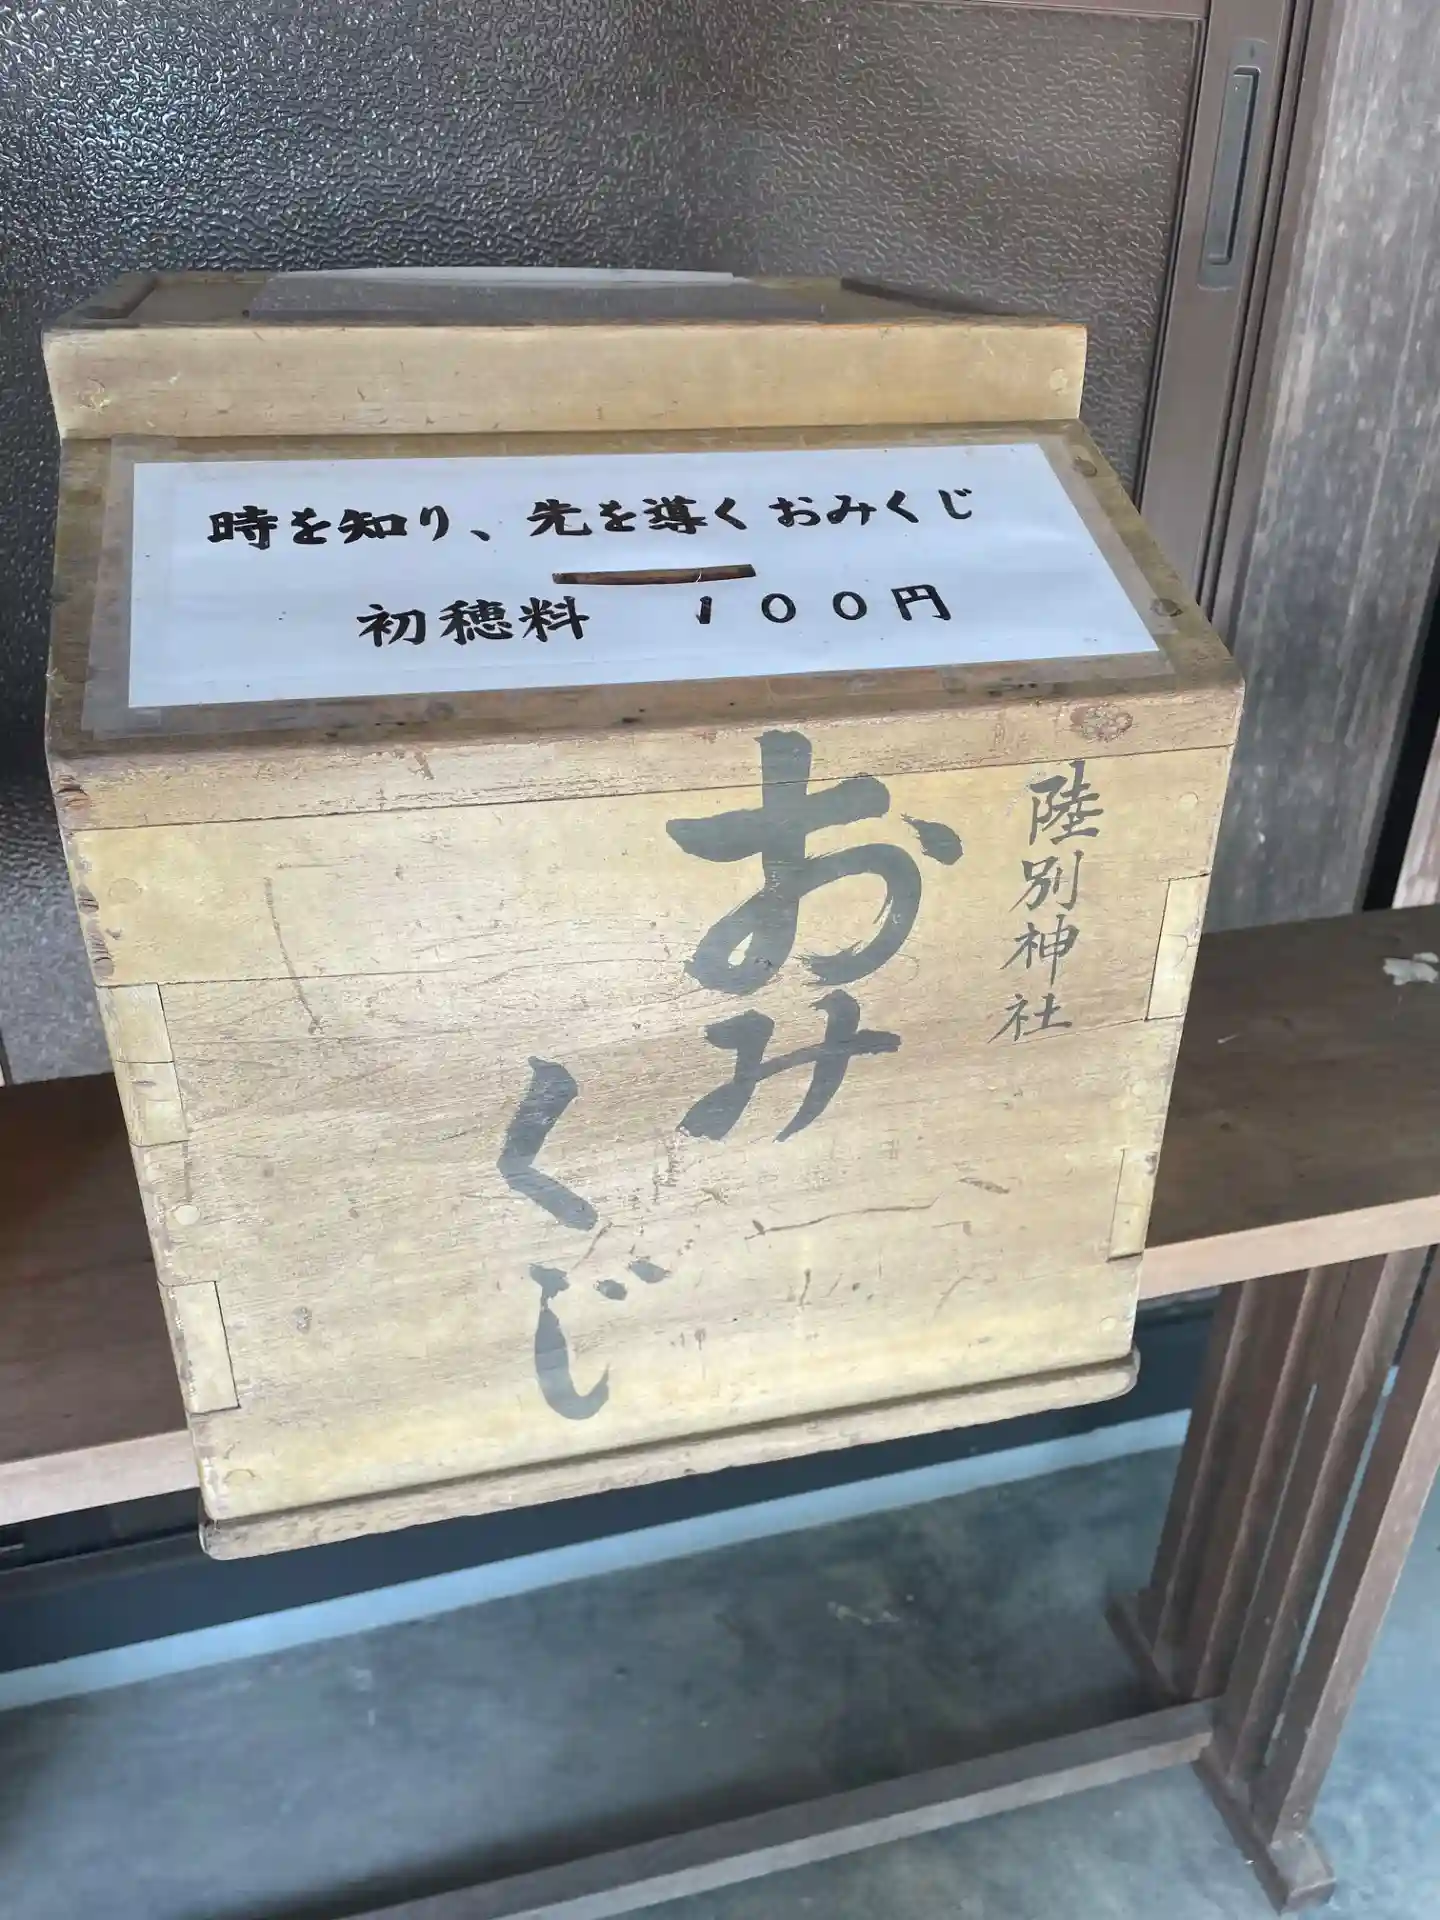 時を知り、先を導くおみくじ
初穂料　１００円
陸別神社
おみ
くじ